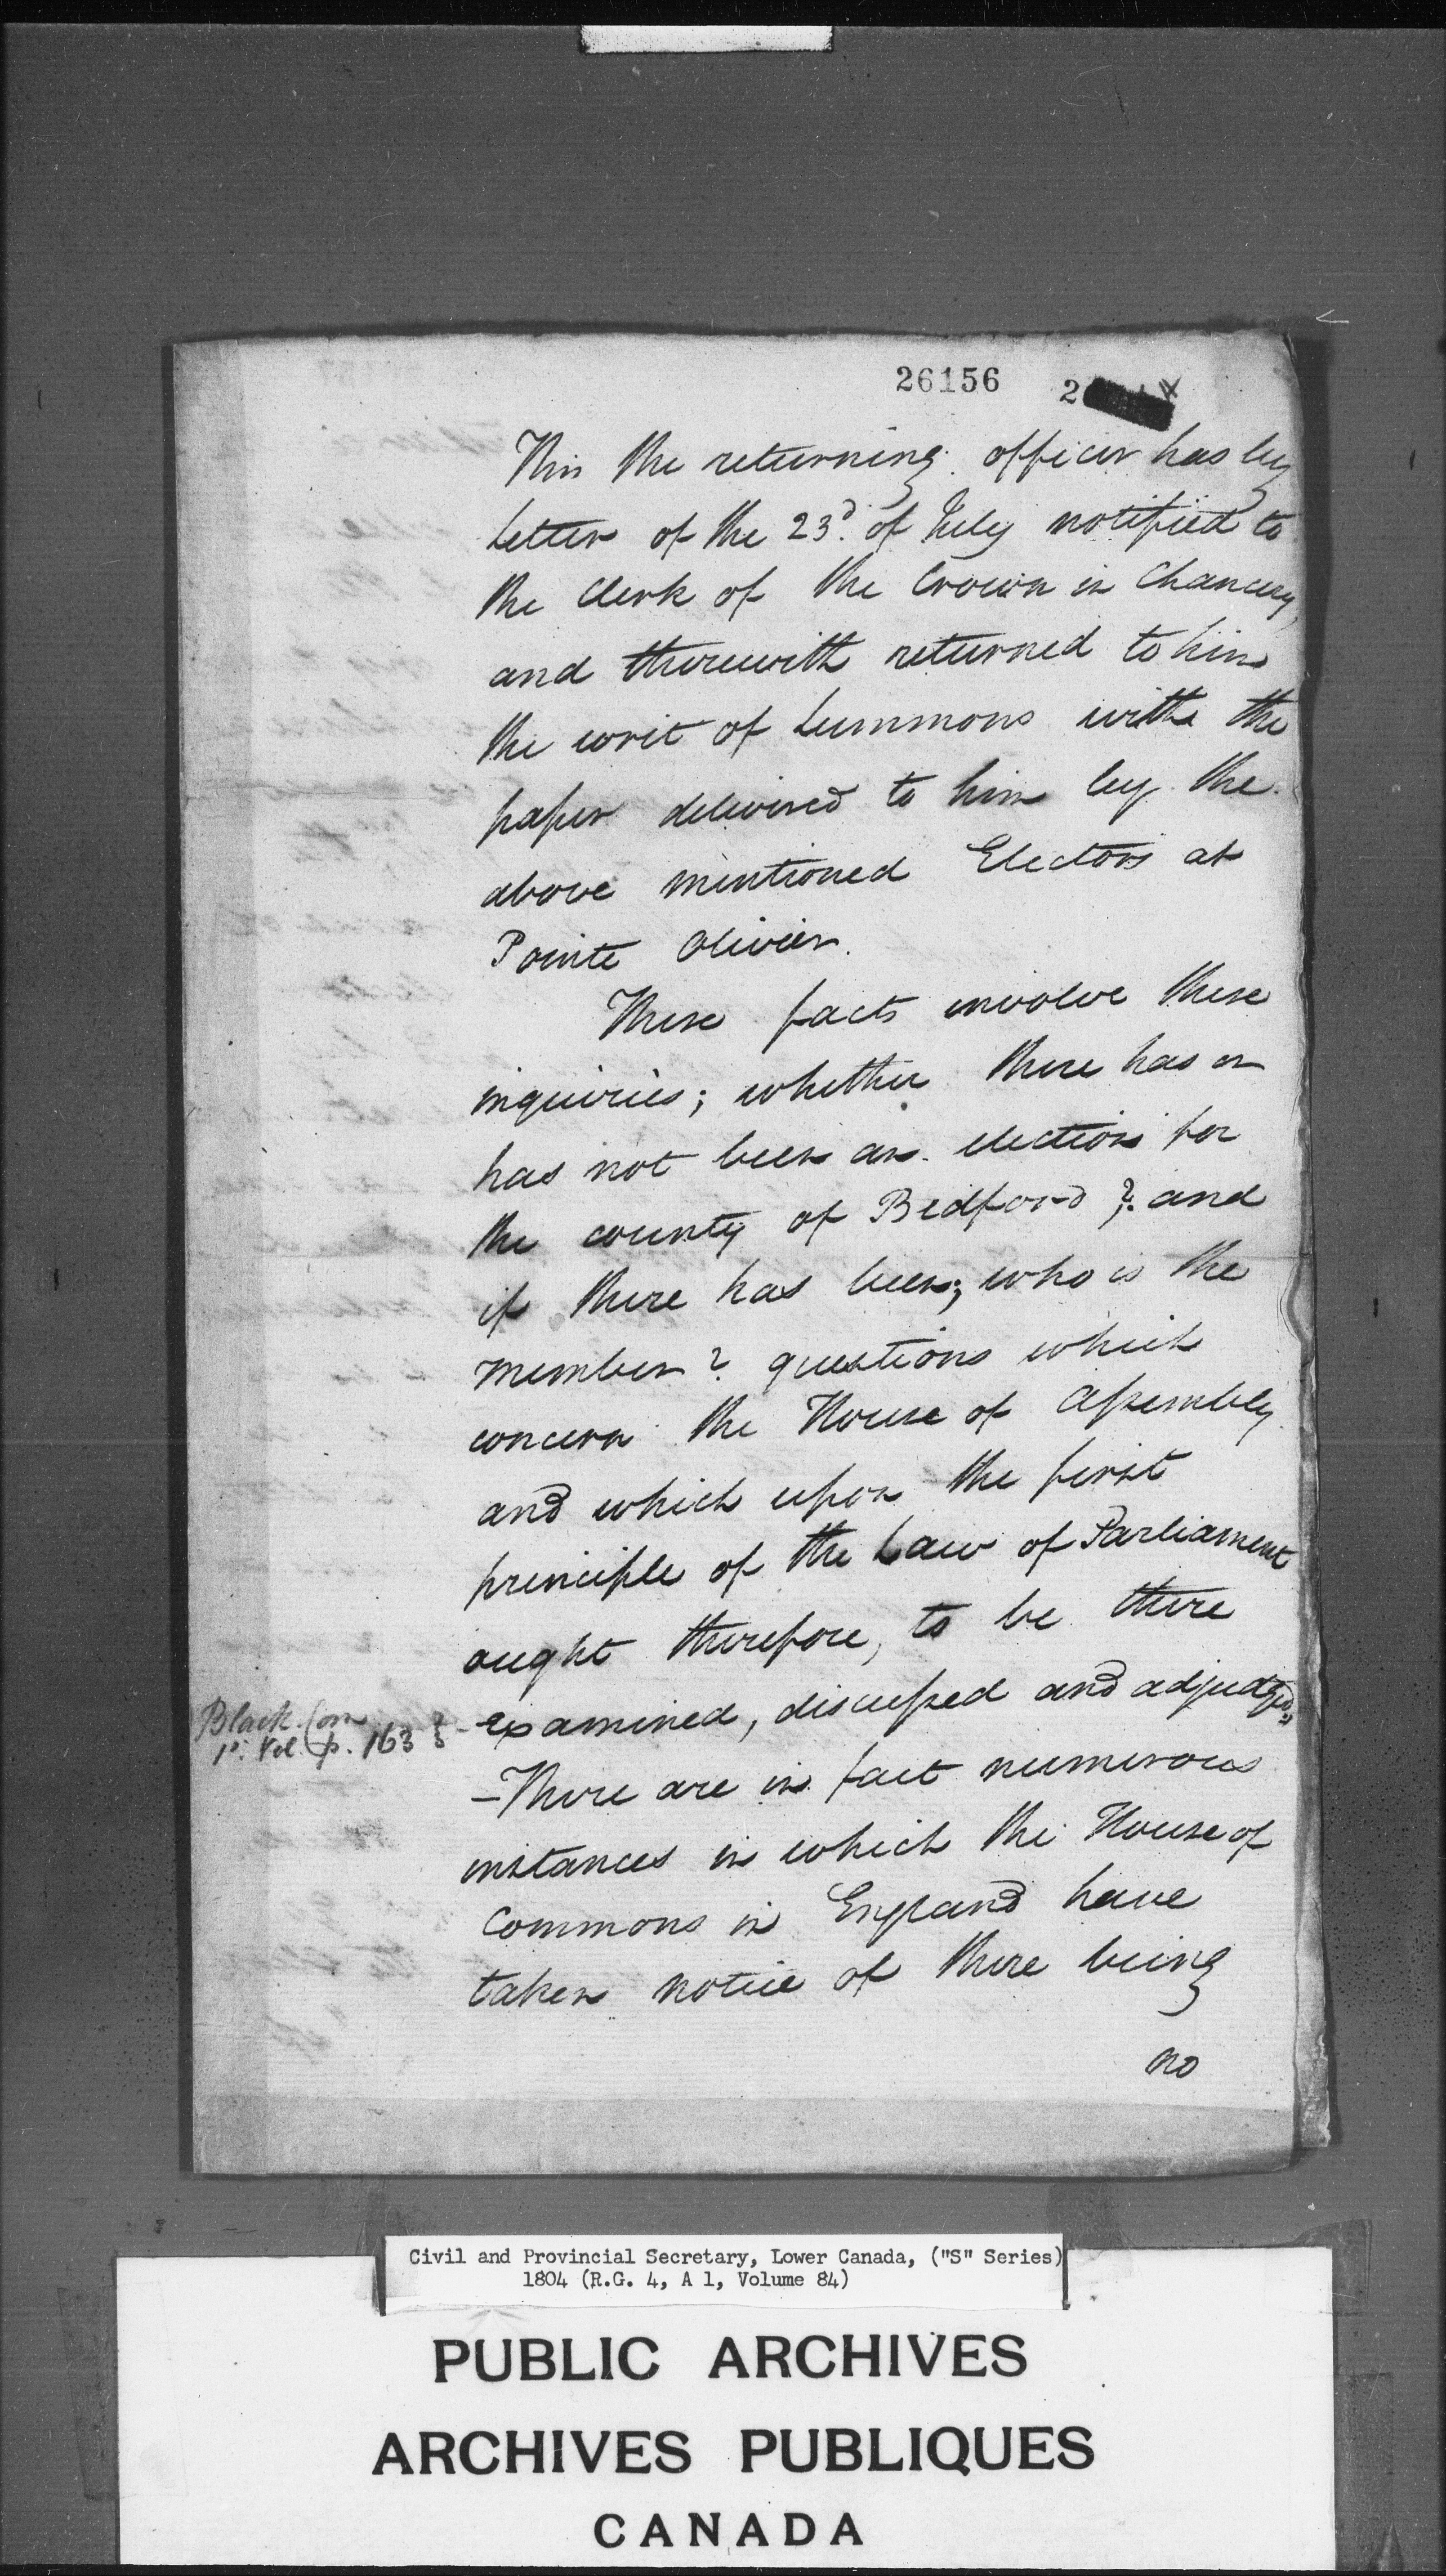 26156 2
This the returning officer has by
letter of the 23d. of July notified to
the Clerk of the Crown in Chancery,
and therewith returned to him
the writ of Summons with the
paper delivered to him by the
above mentioned Electors at
Pointe Olivier.
These facts involve these
inquiries; whether there has or
has not been an election for
the county of Bedford? and
if there has been; who is the
member? questions which
concern the House of Assembly
and which upon the first
principle of the Law of Parliament
ought therefore, to be there
Black. Com
1o. Vol. p. 163
examined, discussed and adjudged"
-There are in fact numerous
instances in which the House of
Commons in England have
taken notice of there being
no
Civil and Provincial Secretary, Lower Canada, ("S" Series)
1804 (R.G. 4, A 1, Volume 84)
PUBLIC ARCHIVES
ARCHIVES PUBLIQUES
CANADA